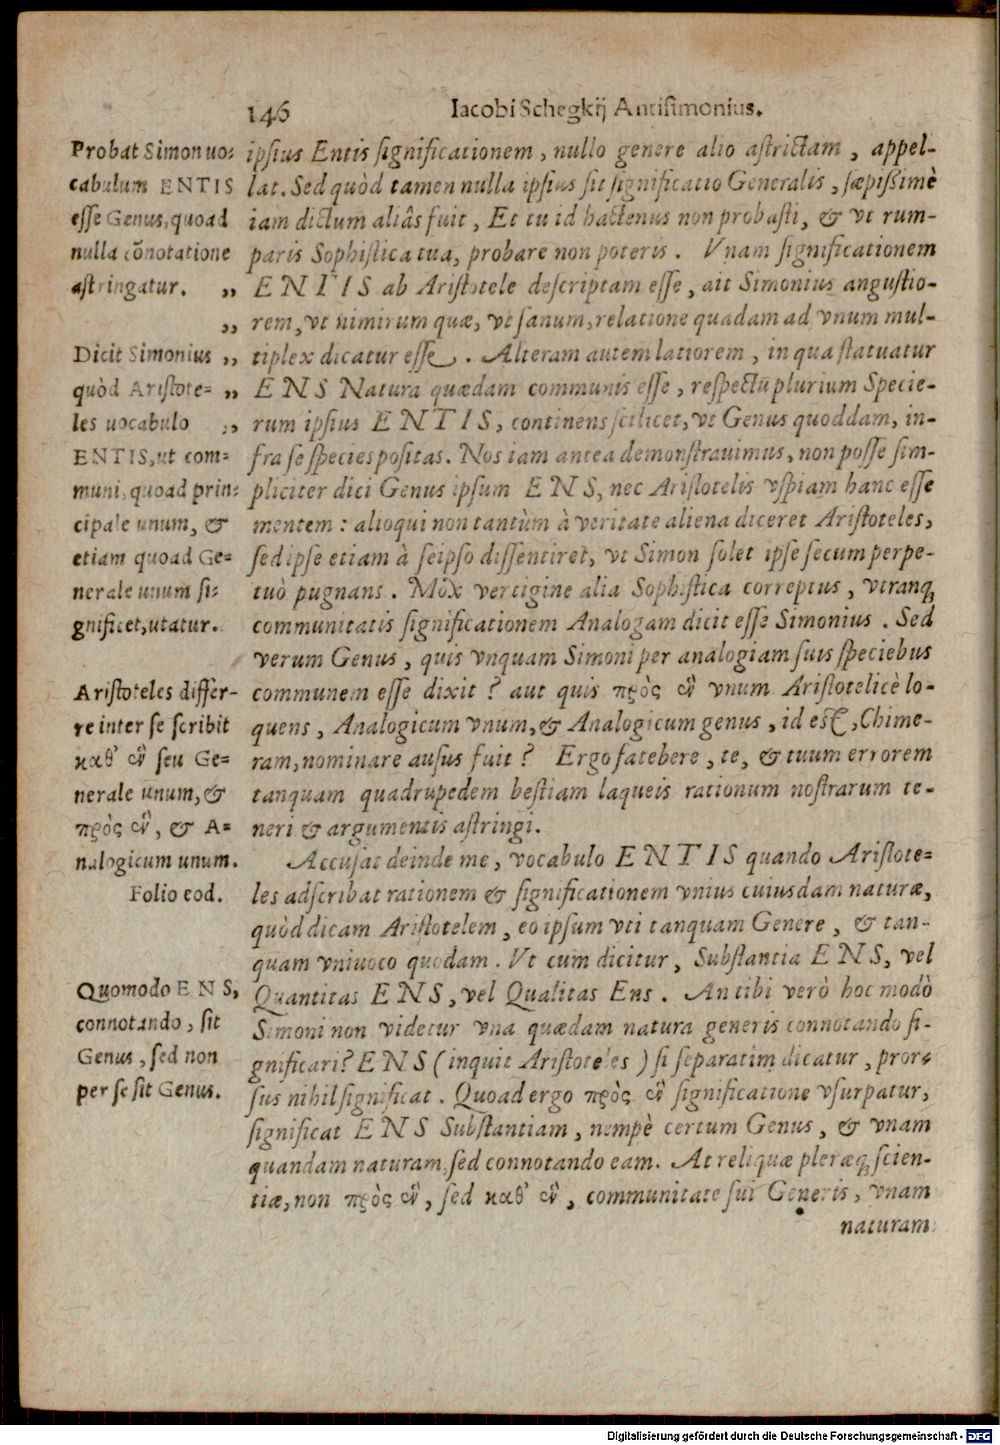 146 Iacobi Schegkij Antisimonius.
Probat Simon uo-
cabulum ENTIS
esse Genus, quoad
nulla cõnotatione
astringatur. „
„
Dicit Simonius „
quòd Aristote- „
les uocabulo „
ENTIS, ut com-
muni, quoad prin-
cipale unum, &
etiam quoad Ge-
nerale unum si-
gnificet, utatur.
Aristoteles differ-
re inter se scribit
καθ' ἓν seu Ge-
nerale unum, &
πρὸς ἓν, & A-
nalogicum unum.
Folio eod.
Quomodo ENS,
connotando, sit
Genus, sed non
per se sit Genus.
ipsius Entis significationem, nullo genere alio astrictam, appel-
lat. Sed quòd tamen nulla ipsius sit significatio Generalis, sæpißimè
iam dictum aliâs fuit, Et tu id hactenus non probasti, & vt rum-
paris Sophistica tua, probare non poteris. Vnam significationem
ENTIS ab Aristotele descriptam esse, ait Simonius angustio-
rem, vt nimirum quæ, vt sanum, relatione quadam ad vnum mul-
tiplex dicatur esse. Alteram autem latiorem, in qua statuatur
ENS Natura quædam communis esse, respectũ plurium Specie-
rum ipsius ENTIS, continens scilicet, vt Genus quoddam, in-
fra se species positas. Nos iam antea demonstrauimus, non posse sim-
pliciter dici Genus ipsum ENS, nec Aristotelis vspiam hanc esse
mentem: alioqui non tantùm à veritate aliena diceret Aristoteles,
sed ipse etiam à seipso dissentiret, vt Simon solet ipse secum perpe-
tuò pugnans. Mox vertigine alia Sophistica correptus, vtranq́
communitatis significationem Analogam dicit esse Simonius. Sed
verum Genus, quis vnquam Simoni per analogiam suis speciebus
communem esse dixit? aut quis πρὸς ἓν vnum Aristotelicè lo-
quens, Analogicum vnum, & Analogicum genus, id est, Chime-
ram, nominare ausus fuit? Ergo fatebere, te, & tuum errorem
tanquam quadrupedem bestiam laqueis rationum nostrarum te-
neri & argumentis astringi.
Accusat deinde me, vocabulo ENTIS quando Aristote-
les adscribat rationem & significationem vnius cuiusdam naturæ,
quòd dicam Aristotelem, eo ipsum vti tanquam Genere, & tan-
quam vniuoco quodam. Vt cum dicitur, Substantia ENS, vel
Quantitas ENS, vel Qualitas Ens. An tibi verò hoc modò
Simoni non videtur vna quædam natura generis connotando si-
gnificari? ENS (inquit Aristoteles) si separatim dicatur, pror-
sus nihil significat. Quoad ergo πρὸς ἓν significatione vsurpatur,
significat ENS Substantiam, nempè certum Genus, & vnam
quandam naturam, sed connotando eam. At reliquæ pleræq́ scien-
tiæ, non πρὸς ἓν, sed καθ' ἓν, communitate sui Generis, vnam
naturam
Digitalisierung gefördert durch die Deutsche Forschungsgemeinschaft - DFG